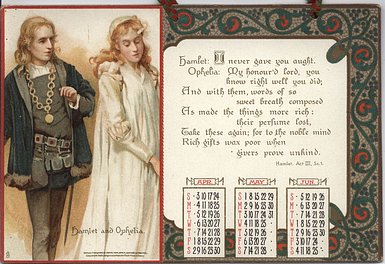 Hamlet: I never gave you aught.
Ophelia: My honour'd lord, you
know right well you did;
And with them, words of so
sweet breath composed
As made the things more rich:
their perfume lost,
Take these again; for to the noble mind
Rich gifts wax poor when
givers prove unkind.
Hamlet. Act III, Sc. 1.
Hamlet and Ophelia.
APR. MAY JUN.
S 3 10 17 24 S 1 8 15 22 29 S 5 12 19 26
M 4 11 18 25 M 2 9 16 23 30 M 6 13 20 27
T 5 12 19 26 T 3 10 17 24 31 T 7 14 21 28
W 6 13 20 27 W 4 11 18 25 W 1 8 15 22 29
T 7 14 21 28 T 5 12 19 26 T 2 9 16 23 30
F 1 8 15 22 29 F 6 13 20 27 F 3 10 17 24
S 2 9 16 23 30 S 7 14 21 28 S 4 11 18 25